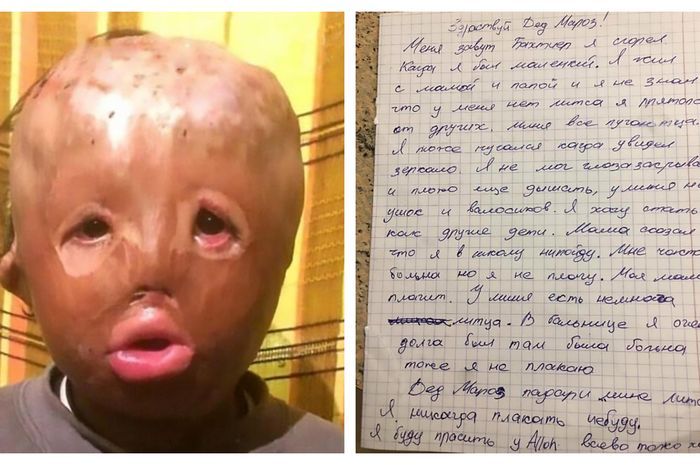 Здраствуй Дед Мароз!
Меня завут Бахтиер я сгорел
Кагда я был маленкий. Я жил
с мамай и папой и я не знал
что у меня нет литса я прятолс
от других. миня все пугаютца.
Я тоже пугался кагда увидел
зеркало. Я не мог глоза засрыва
и плохо ище дышать, у миня не
ушок и валосиков. Я хочу стать
как другие дети. Мама сказал
что я в школу нипойду. Мне часто
больна но я не плачу. Моя мам
плачит. У миня есть немнога
литца. В больнице я оче
долга был там была больна
тоже я не плакаю
Дед Мароз падари мине лит
Я никагда плакать небуду.
Я буду прасить у Alloh всево тоже х